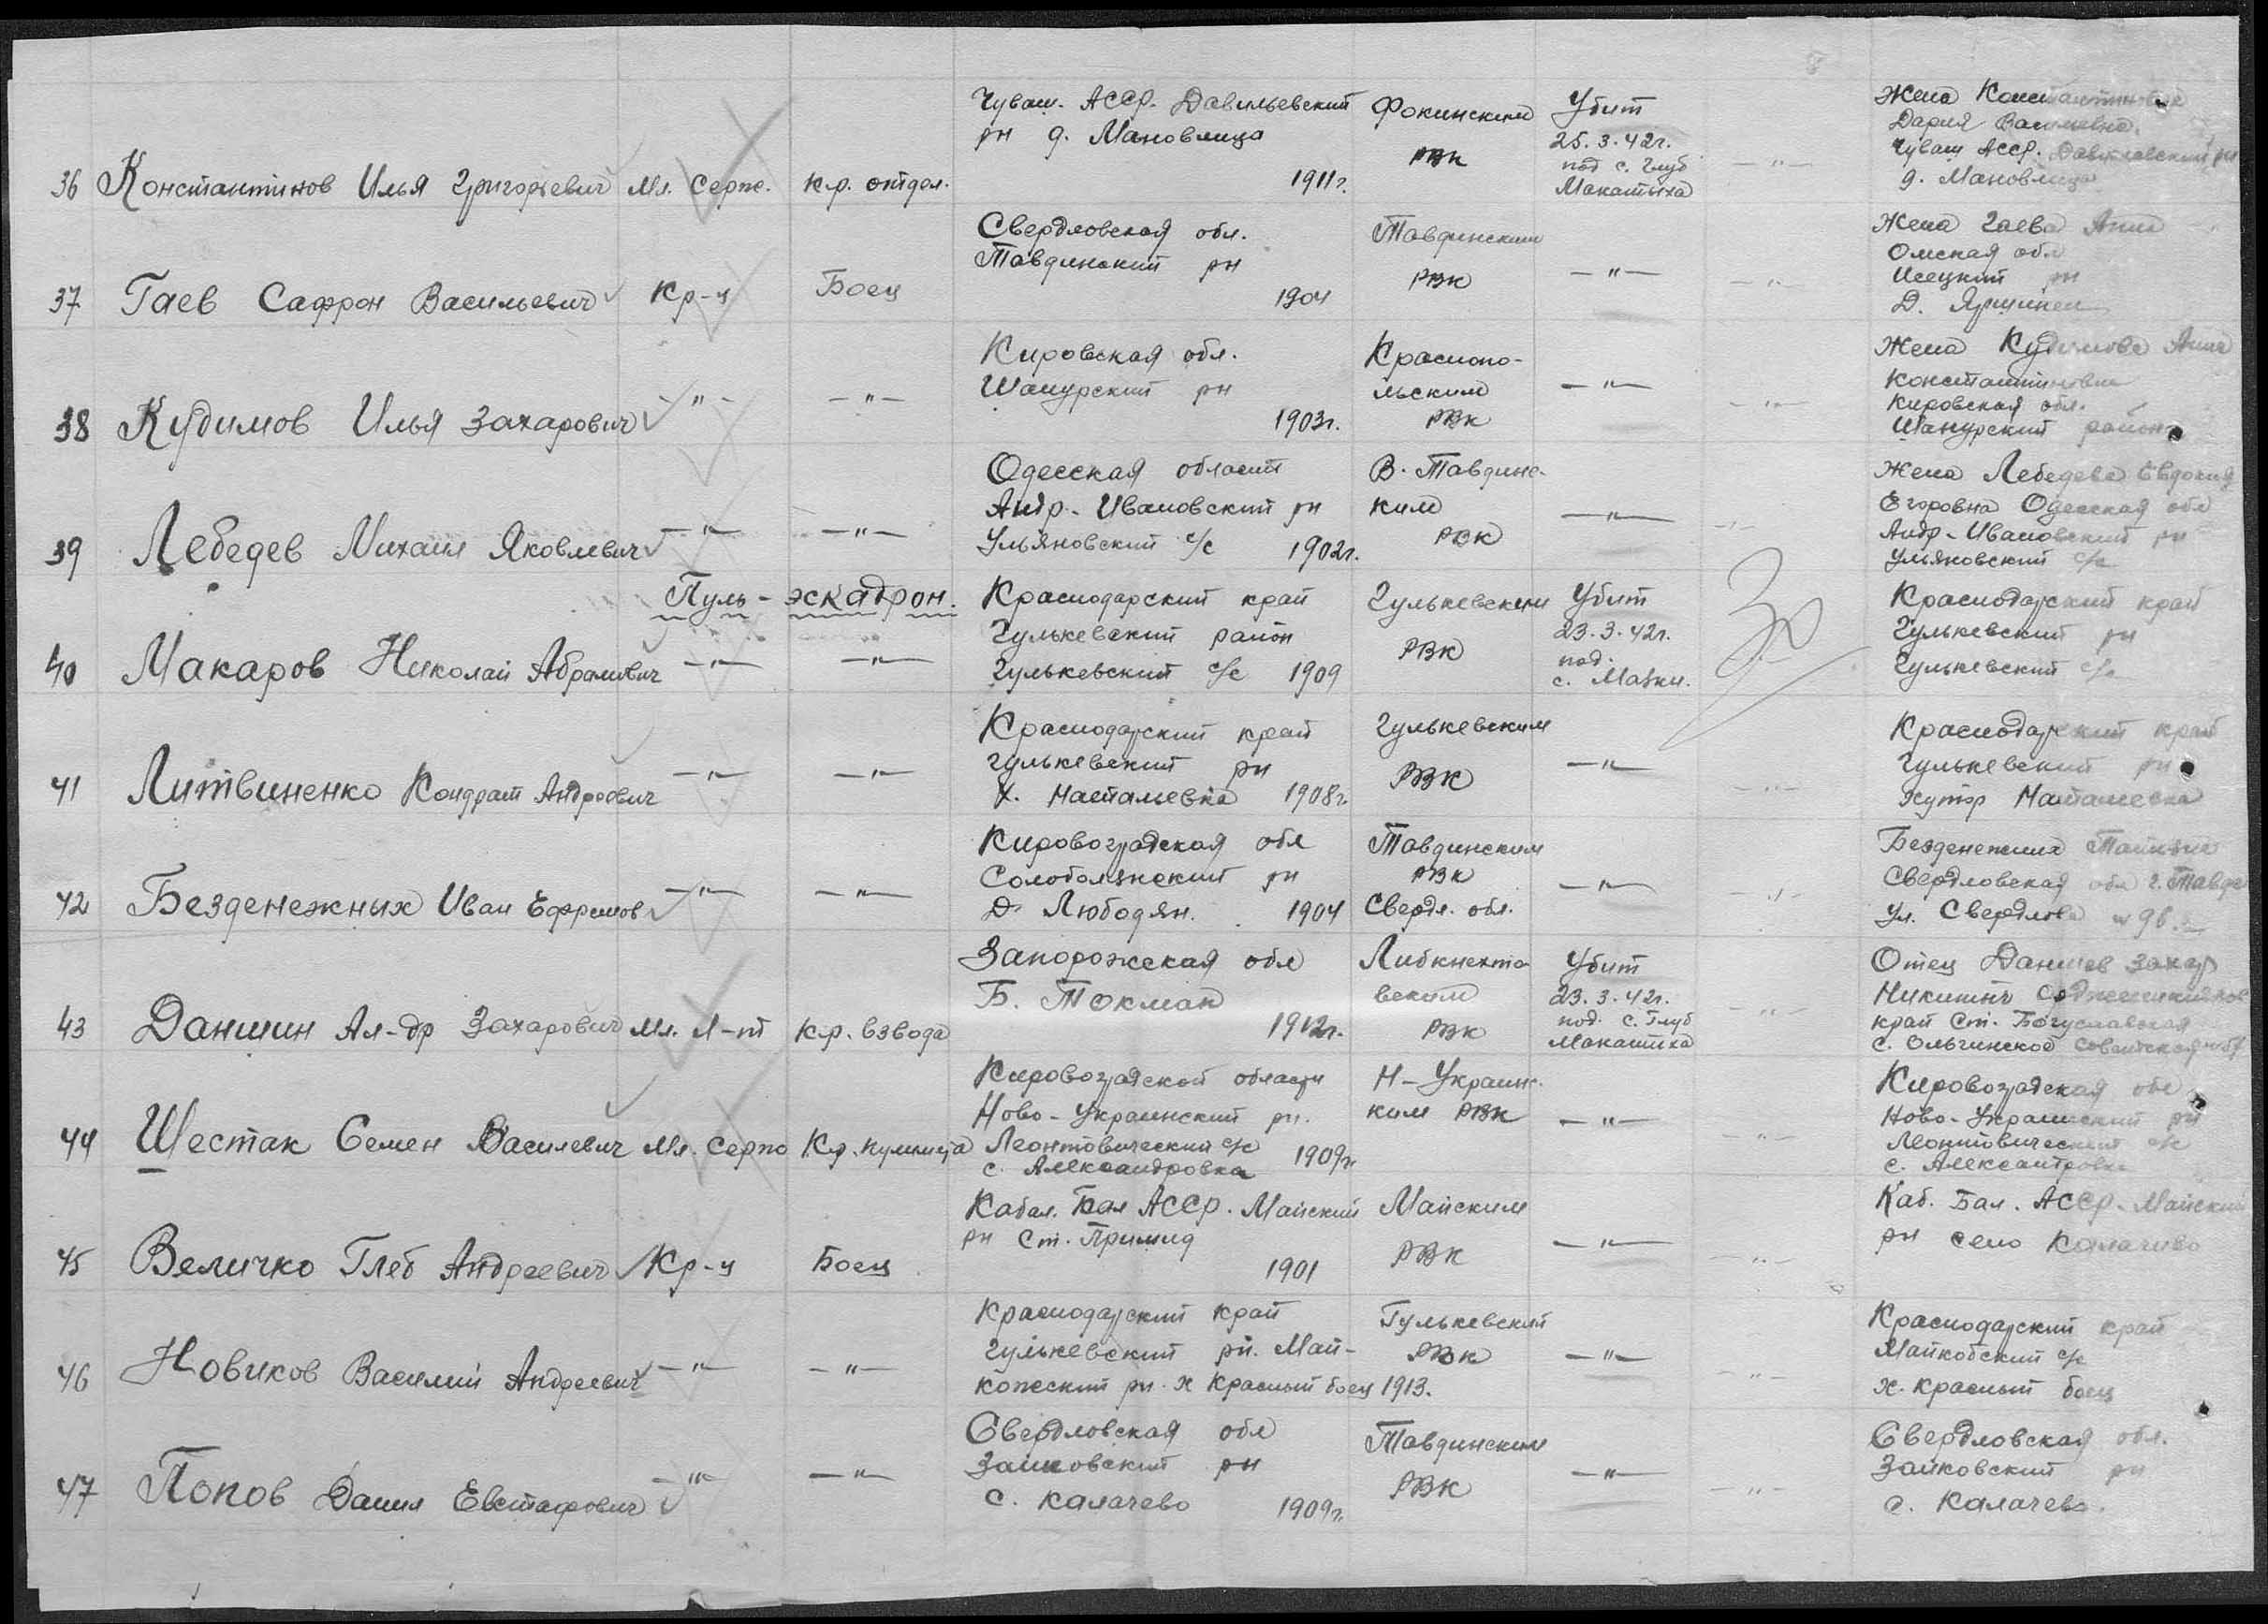 36 Константинов Илья Григорьевич Мл. Серж. К-р. отдел.
Чуваш. АССР. Давильевский
рн д. Мановлица
1911г.
Фокинским
РВК
Убит
25.3.42г.
под с. Глуб
Макатыха
—"—
Жена Константинова
Дария Васильевна
Чуваш АССР. рн
д. Мановлица
37 Гаев Сафрон Васильевич Кр-ц Боец
Свердловская обл.
Тавдинский рн
1904
Тавдинским
РВК
—"—
—"—
Жена Гаева Анна
Омская обл
Исецкий рн
Д.
38 Кудимов Илья Захарович —"— —"—
Кировская обл.
Шанурский рн
1903г.
Краснопо-
льским
РВК
—"—
—"—
Жена Кудимова Анна
Константиновна
Кировская обл.
Шанурский район
39 Лебедев Михаил Яковлевич —"— —"—
Одесская област
Андр.-Ивановский рн
Ульяновский с/с 1902г.
В. Тавдинс-
ким
РВК
—"—
—"—
Жена Лебедева Евдокия
Егоровна Одесская обл
Андр.-Ивановский рн
Ульяновский с/с
Пуль-эскадрон.
40 Макаров Николай Абрамович —"— —"—
Краснодарский край
Гулькевский район
Гулькевский с/с 1909
Гулькевским
РВК
Убит
23.3.42г.
под.
с. Мазки.
Краснодарский край
Гулькевский рн
Гулькевский с/с
41 Литвиненко Кондрат Андреевич —"— —"—
Краснодарский край
Гулькевский рн
х. Натальевка 1908г.
Гулькевским
РВК
—"—
—"—
Краснодарский край
Гулькевский рн
Хутор Наталевка
42 Безденежных Иван Ефремов —"— —"—
Кировоградская обл
рн
Д Любодян. 1904
Тавдинским
РВК
Свердл. обл.
—"—
—"—
Безденежных
Свердловская обл г. Тавда
Ул. Свердлова
43 Даншин Ал-др Захарович Мл. Л-нт К-р. взвода
Запорожская обл
Б. Токмак
1912г.
Либкнехто
вским
РВК
Убит
23.3.42г.
под. с. Глуб
Макатиха
—"—
Отец Даншев Захар
Никитич
край Ст. Богуславская
с. Ольгинское
44 Шестак Семен Василевич Мл. Серж К-р. пулемета
Кировоградской области
Ново-Украинский рн.
Леонтовический с/с
с. Александровка 1909г.
Н-Украинс-
ким РВК
—"—
—"—
Кировоградская обл
Ново-Украинский рн
Леонтовический с/с
с. Александровка
45 Величко Глеб Андреевич Кр-ц Боец
Кабал. Бал АССР. Майский
рн Ст. Примид
1901
Майским
РВК
—"—
—"—
Каб. Бал. АССР. Майский
рн село Калачево
46 Новиков Василий Андреевич —"— —"—
Краснодарский край
Гулькевский рн. Май-
копский рн. х Красный боец 1913.
Гулькевский
РВК
—"—
—"—
Краснодарский край
Майкобский с/с
х. Красный боец
47 Попов Данил Евстафович —"— —"—
Свердловская обл
Зайковский рн
с. Калачево 1909г.
Тавдинским
РВК
—"—
—"—
Свердловская обл.
Зайковский рн
с. Калачево.